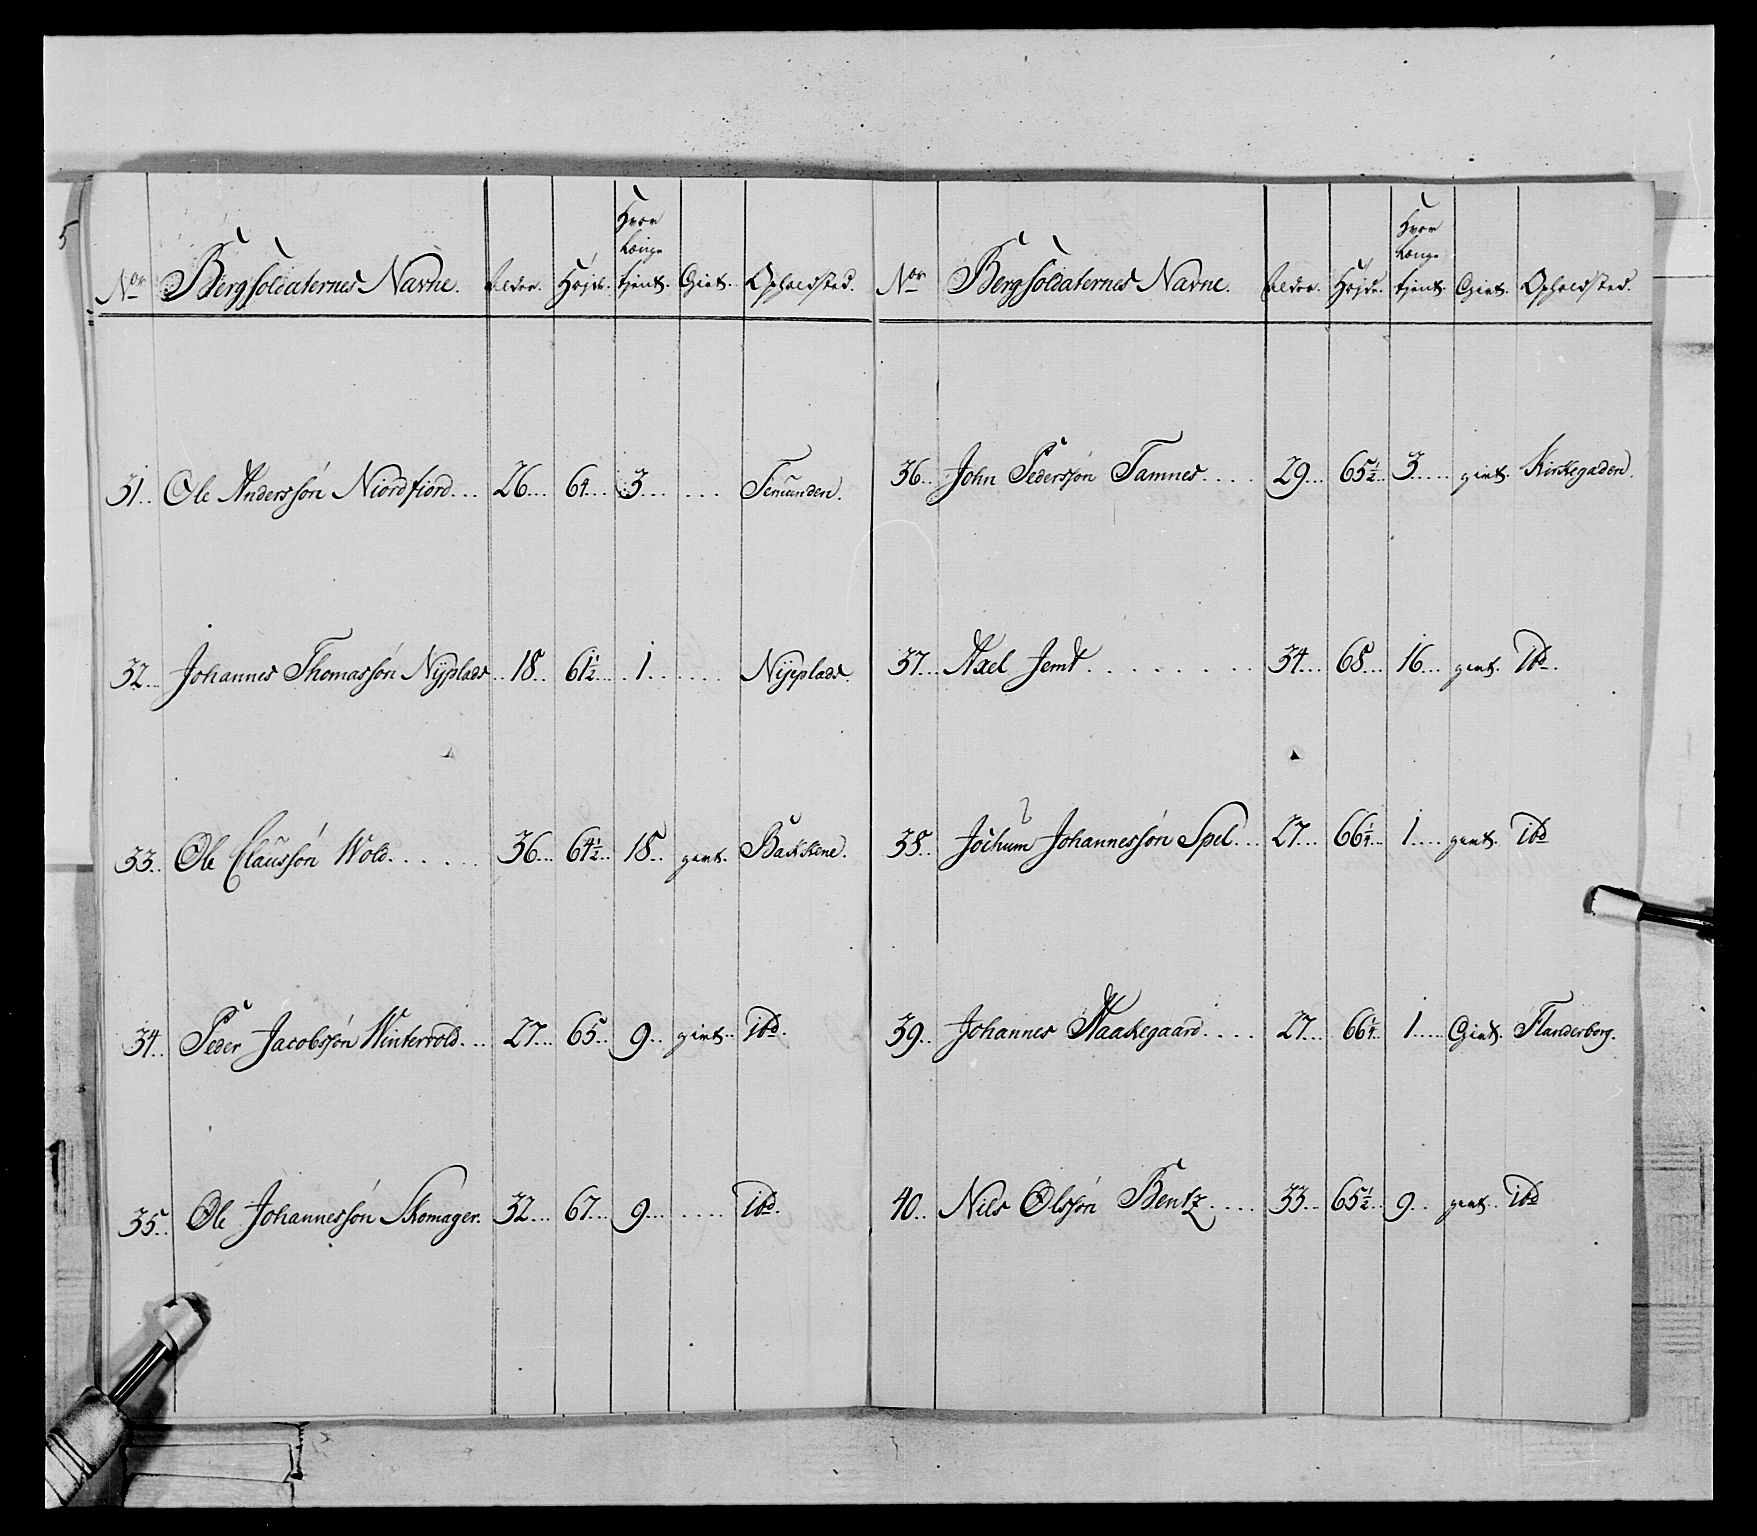 5
Nor Bergsoldaternes Navne. Alder. Højde. Hvor Længe tjent. Givt. Opholdsted.
31. Ole Anderssøn Niordfiord... 26... 64... 3... .... Femunden.
32... Johannes Thomassøn Nÿplads.. 18.. 61½.. 1. ..... Nÿplads.
33.. Ole Claussøn Wold....... 36... 64½.. 18.. givt. Backkene.
34.. Peder Jacobssøn Wintervold... 27... 65.. 9.. givt.. Ibd.
35.. Ole Johannessøn Skomager. 32... 67... 9... ..... Ibd.
Nor Bergsoldaternes Navne. Alder. Højde. Hvor Længe tjent. Givt. Opholdsted.
36.. John Pederssøn Tamnes.... 29... 65½.. 3..... givt. Kirkegaden.
37... Axel Jemt........ 34... 68... 16... givt. Ibd.
38.. Jochum Johannessøn Spel... 27... 66¼... 1.... givt. Ibd
39.. Johannes Aaskegaard.... 27... 66¼.. 1..... Givt. Flanderborg.
40.. Nils Olssøn Bentz.... 33... 65½.. 9.. givt.. Ibd